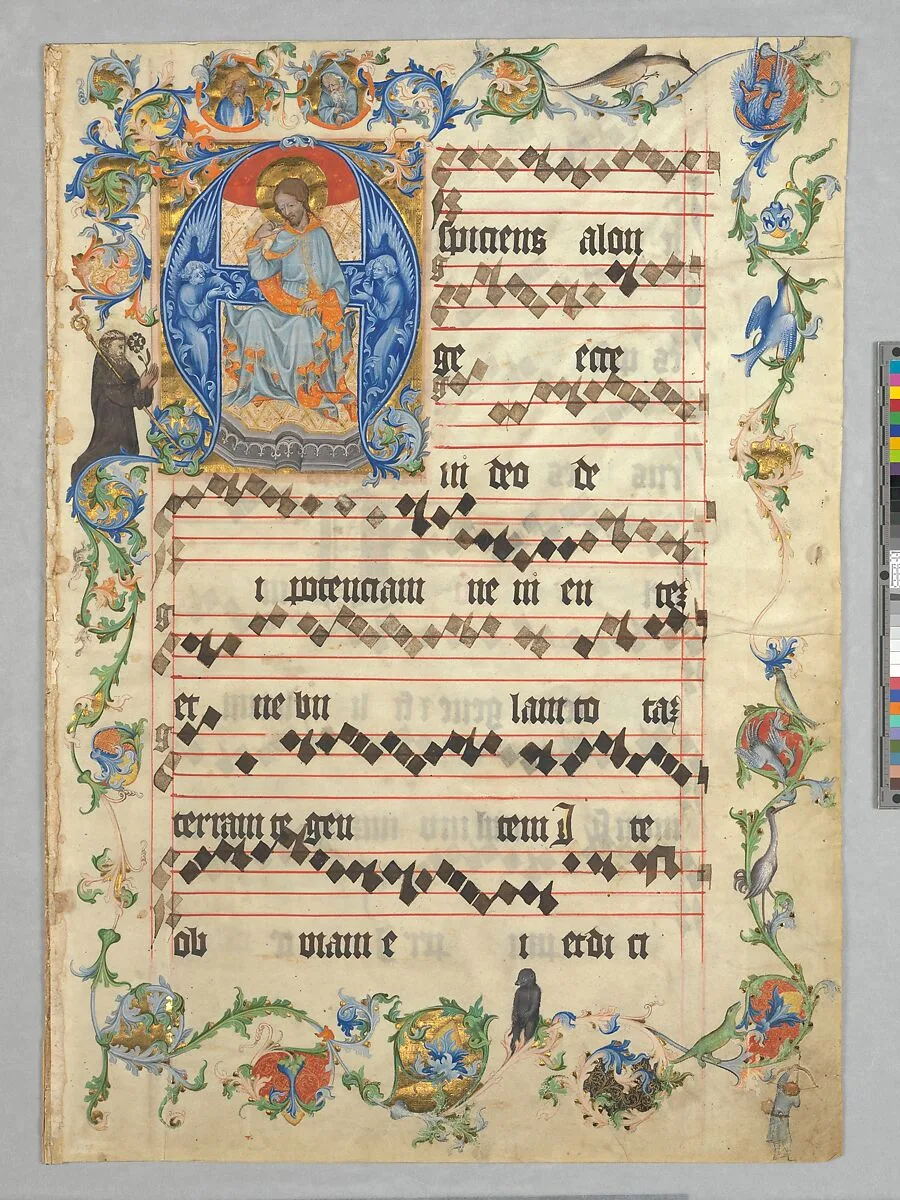 Aspiciens alon
ge ecce
vi deo de
i potenciam ve ni en teꝫ
et ne bu lam to taꝫ
terram te gen tem I te
ob viam e i et di ci